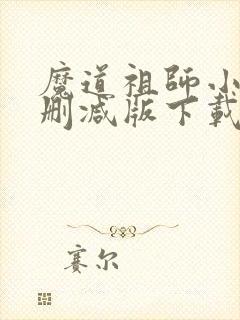 魔道祖師小
刪减版下載
赛尔